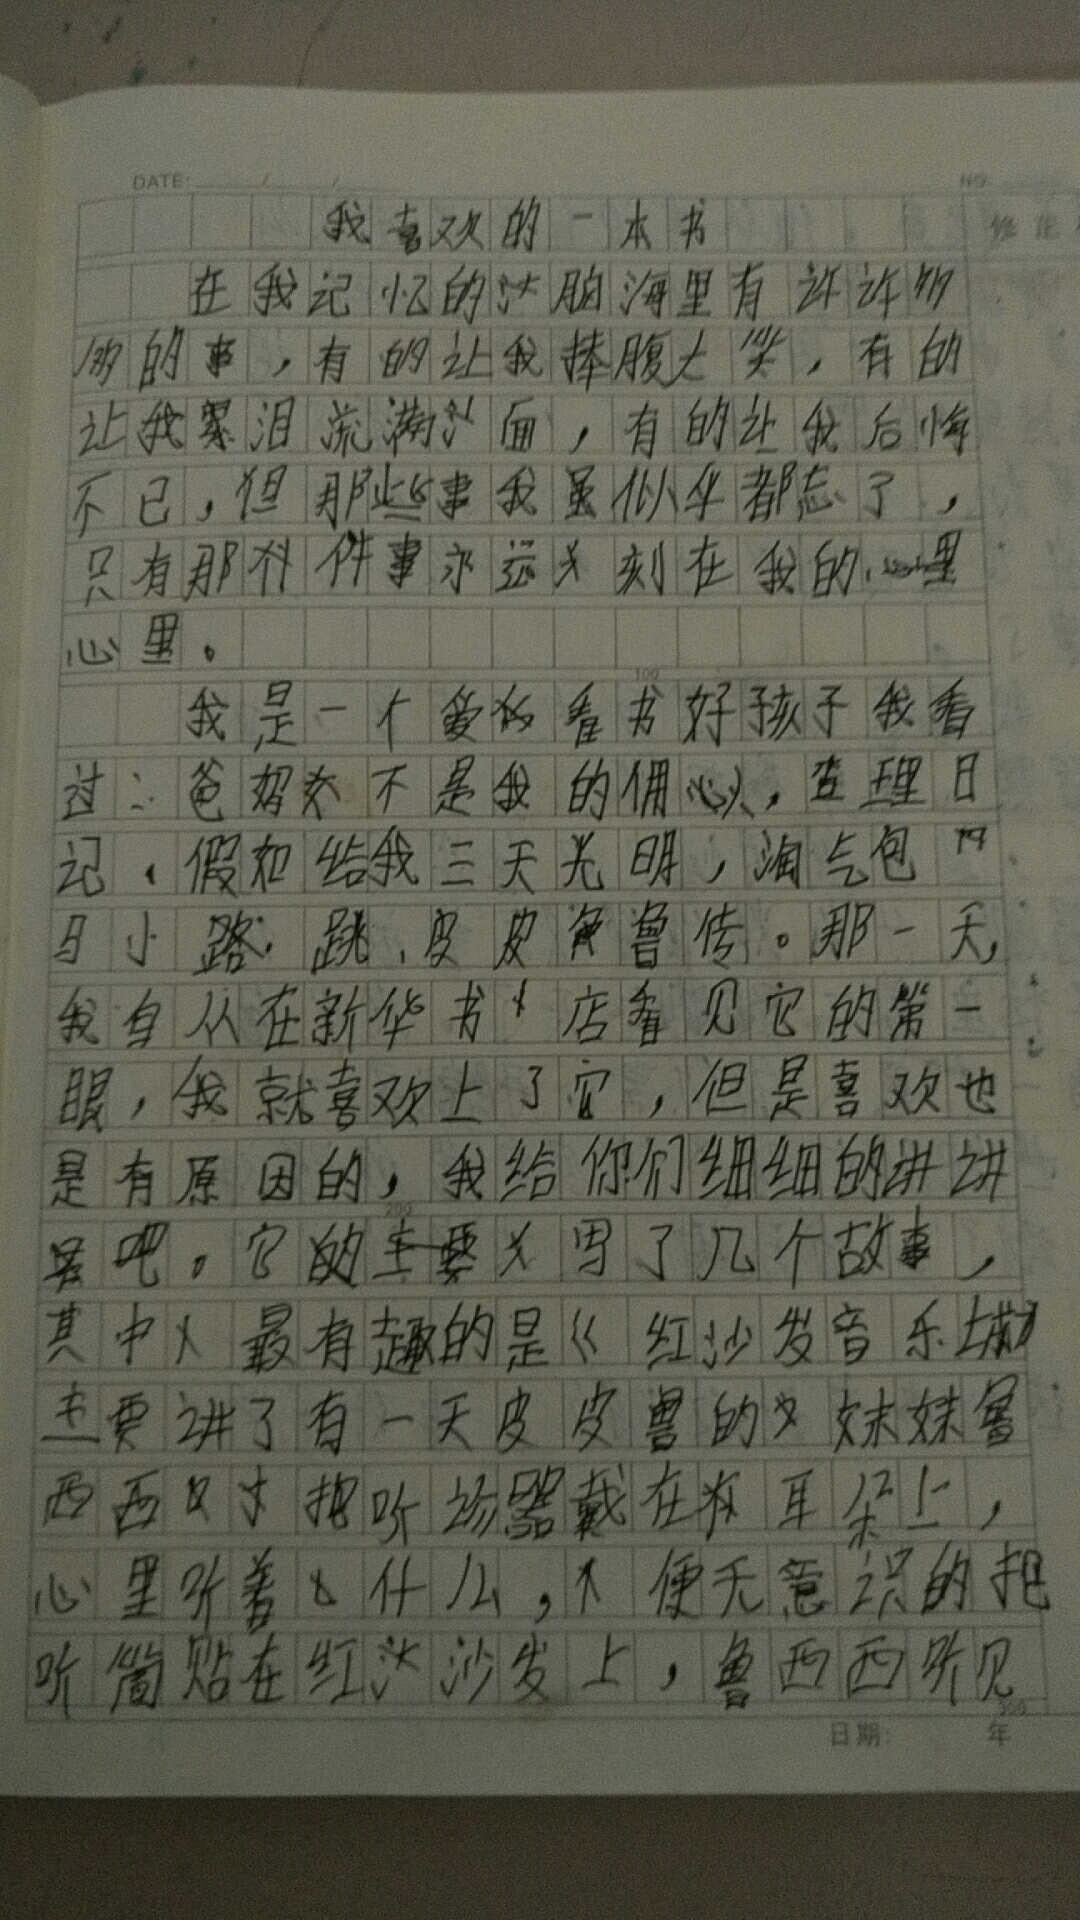 DATE: / /
NO
我喜欢的一本书
在我记忆的脑海里有许许多
多的事，有的让我捧腹大笑，有的
让我泪流满面，有的让我后悔
不已，但那些事我虽似乎都忘了，
只有那件事永远刻在我的
心里。
100
我是一个爱看书好孩子我看
过：爸妈不是我的佣人，查理日
记、假如给我三天光明，淘气包
马小跳、皮皮鲁传。那一天，
我自从在新华书店看见它的第一
眼，我就喜欢上了它，但是喜欢也
是有原因的，我给你们细细的讲讲
吧。它的主要写了几个故事，
200
其中最有趣的是《红沙发音乐
主要讲了有一天皮皮鲁的妹妹鲁
西西把听诊器戴在耳朵上，
心里听着什么，便无意识的把
听筒贴在红沙发上，鲁西西听见
300
日期: 年